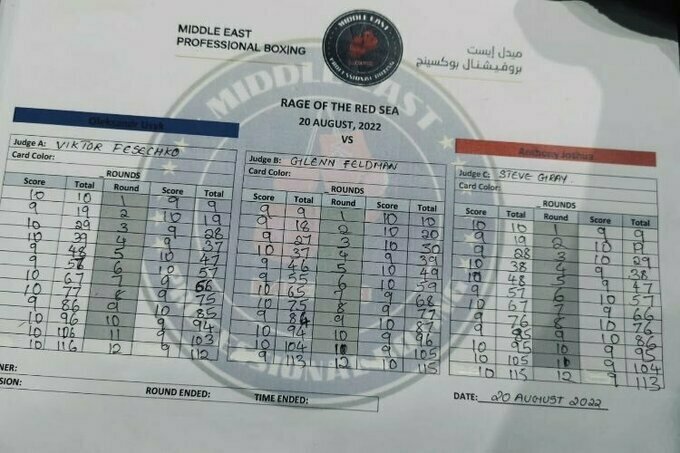 MIDDLE EAST
PROFESSIONAL BOXING
MIDDLE EAST
PROFESSIONAL BOXING
ميدل إيست
بروفيشنال بوكسينج
RAGE OF THE RED SEA
20 AUGUST, 2022
VS
Oleksandr Usyk
Judge A: VIKTOR FESECHKO
Card Color:
_ROUNDS
Score Total Round Score Total
10 10 1 9 9
19 2 10 19
10 29 3 9 28
10 39 4 9 37
9 48 5 10 47
9 6 10 57
10 67 7 9 66
10 77 8 9 75
9 86 9 10 85
10 96 10 9 94
10 106 11 9 103
10 116 12 9 112
Judge B: GLENN FELDMAN
Card Color:
_ROUNDS
Score Total Round Score Total
9 9 1 10 10
9 18 2 10 20
9 27 3 10 30
10 37 4 9 39
9 46 5 10 49
9 55 6 10 59
10 65 7 9 68
10 75 8 9 77
9 84 9 10 87
10 94 10 9 96
10 104 11 9 105
9 113 12 10 115
Anthony Joshua
Judge C: STEVE GRAY
Card Color:
_ROUNDS
Score Total Round Score Total
10 10 1 9 9
9 19 2 10 19
9 28 3 10 29
10 38 4 9 38
10 48 5 9 47
9 57 6 10 57
10 67 7 9 66
9 76 8 10 76
9 9 10 86
10 95 10 9 95
10 105 11 9 104
10 115 12 9 113
NER:
SION: ROUND ENDED: TIME ENDED:
DATE: 20 AUGUST 2022